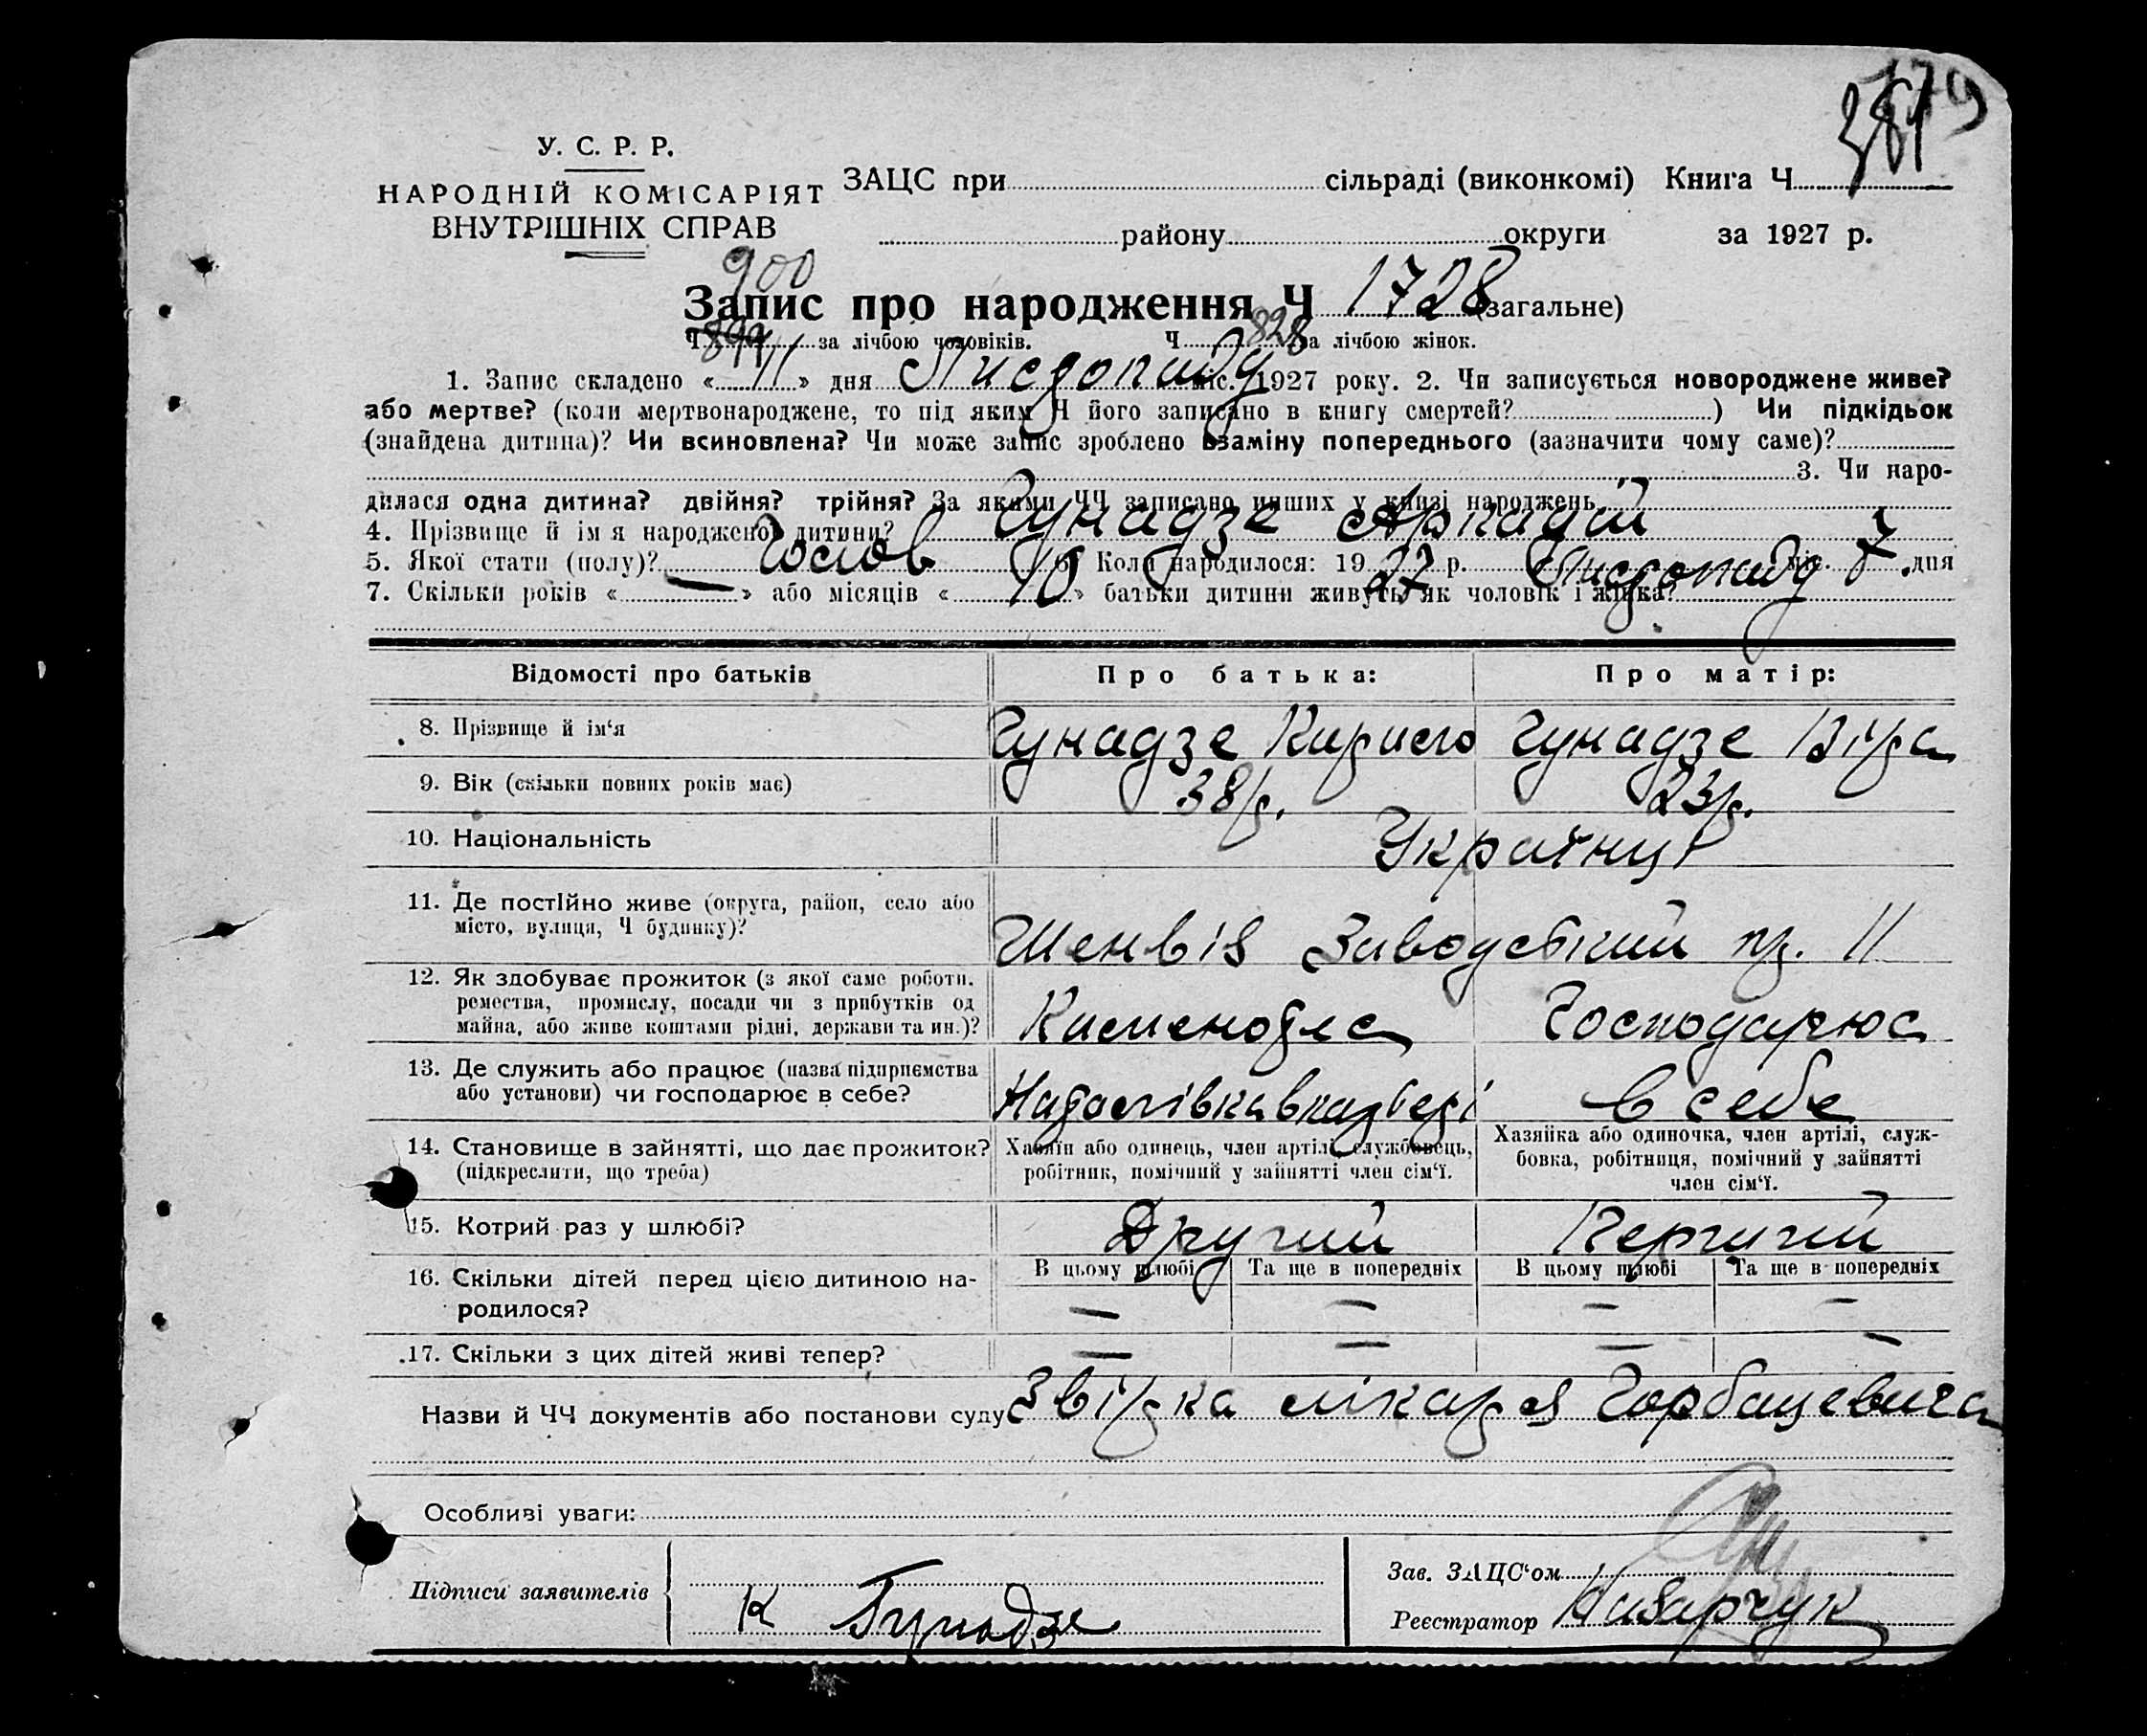 79
У. С. Р. Р.
НАРОДНІЙ КОМІСАРІЯТ
ВНУТРІШНІХ СПРАВ
ЗАЦС при сільраді (виконкомі) Книга Ч
району округи за 1927 р.
900
Запис про народження Ч 1728 (загальне)
Ч 899 за лічбою чоловіків. Ч 828 за лічбою жінок.
1. Запис складено « 11 » дня Листопаду міс. 1927 року. 2. Чи записується новороджене живе?
або мертве? (коли мертвонароджене, то під яким Ч його записано в книгу смертей? ) Чи підкідьок
(знайдена дитина)? Чи всиновлена? Чи може запис зроблено взаміну попереднього (зазначити чому саме)?
3. Чи наро-
дилася одна дитина? двійня? трійня? За якими ЧЧ записано инших у книзі народжень
4. Прізвище й ім я народженої дитини? Гунадзе Аркадій
5. Якої стати (полу)? Чолов 6. Коли народилося: 1927 р. Листопаду міс. 7 дня
7. Скільки років « — » або місяців « 10 » батьки дитини живуть як чоловік і жінка?
Відомості про батьків Про батька: Про матір:
8. Прізвище й ім‘я Гунадзе Кирило Гунадзе Віра
9. Вік (скільки повних років має) 38 р. 23 р.
10. Національність Українці
11. Де постійно живе (округа, район, село або
місто, вулиця, Ч будинку)? Заводський пр. 11
12. Як здобуває прожиток (з якої саме роботи,
ремества, промислу, посади чи з прибутків од
майна, або живе коштами рідні, держави та ин.)? Господарює
13. Де служить або працює (назва підприємства
або установи) чи господарює в себе? в себе
14. Становище в зайнятті, що дає прожиток?
(підкреслити, що треба)
Хазяїн або одинець, член артілі, службовець,
робітник, помічний у зайнятті член сім‘ї.
Хазяйка або одиночка, член артілі, служ-
бовка, робітниця, помічний у зайнятті
член сім‘ї.
15. Котрий раз у шлюбі? Другий Перший
16. Скільки дітей перед цією дитиною на-
родилося?
В цьому шлюбі Та ще в попередніх В цьому шлюбі Та ще в попередніх
— — — —
17. Скільки з цих дітей живі тепер? — — — —
Назви й ЧЧ документів або постанови суду Звірка лікаря Горбацевича
Особливі уваги:
Підписи заявителів К Гунадзе
Зав. ЗАЦС‘ом
Реєстратор Назарчук